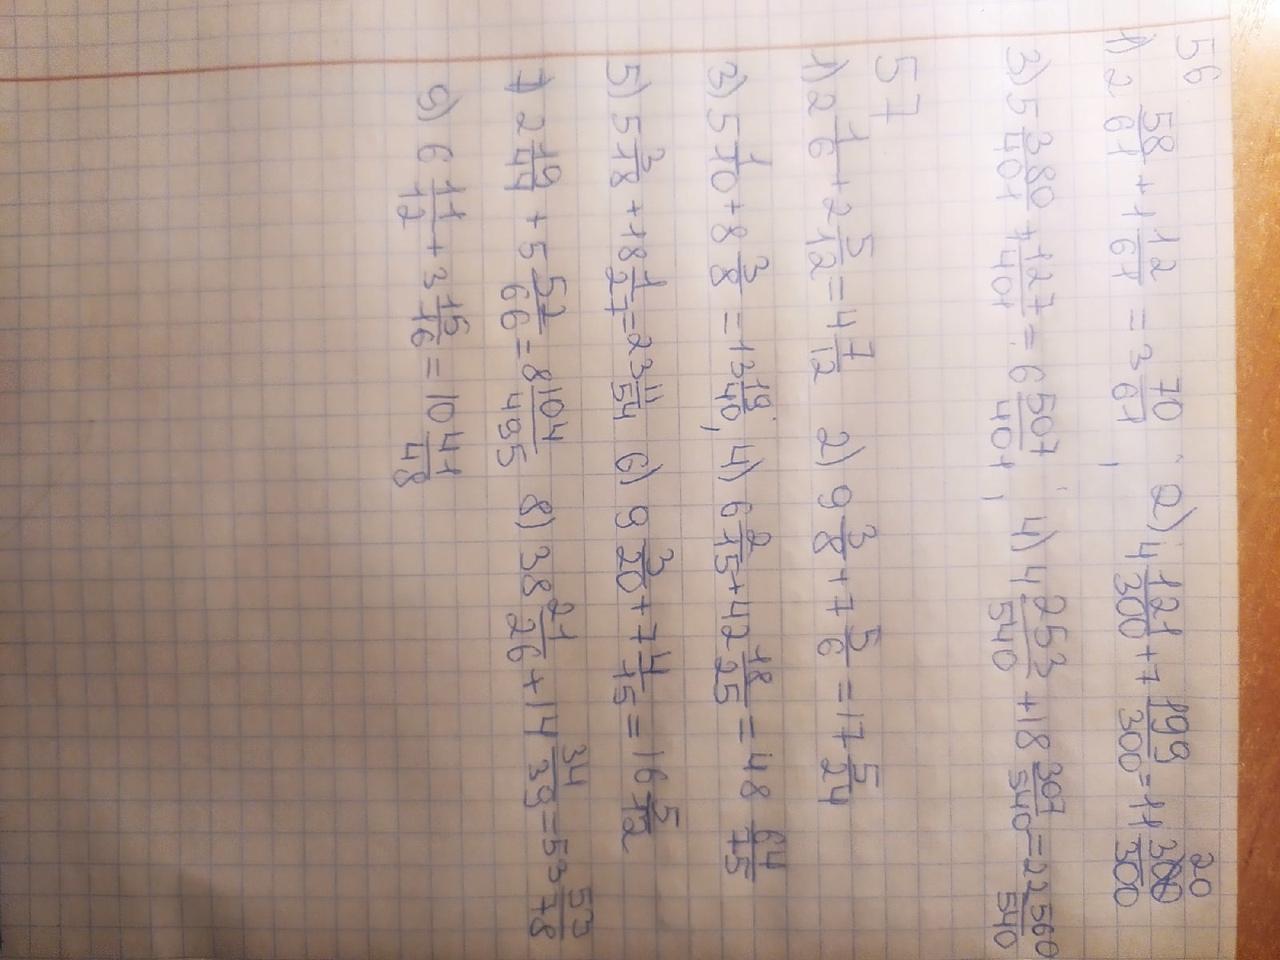 56
1) 2 58/61 + 1 12/61 = 3 70/61, 2) 4 121/300 + 7 199/300 = 11 20/300
3) 5 380/401 + 1 127/401 = 6 507/401, 4) 4 253/540 + 18 307/540 = 22 560/540
57
1) 2 1/6 + 2 5/12 = 4 7/12 2) 9 3/8 + 7 5/6 = 17 5/24
3) 5 1/10 + 8 3/8 = 13 19/40, 4) 6 2/15 + 42 18/25 = 48 64/75
5) 5 3/18 + 18 1/27 = 23 11/54 6) 9 3/20 + 7 4/15 = 16 5/12
7) 2 19/44 + 5 52/66 = 8 104/495 8) 38 21/26 + 14 34/39 = 53 53/78
9) 6 11/12 + 3 15/16 = 10 41/48